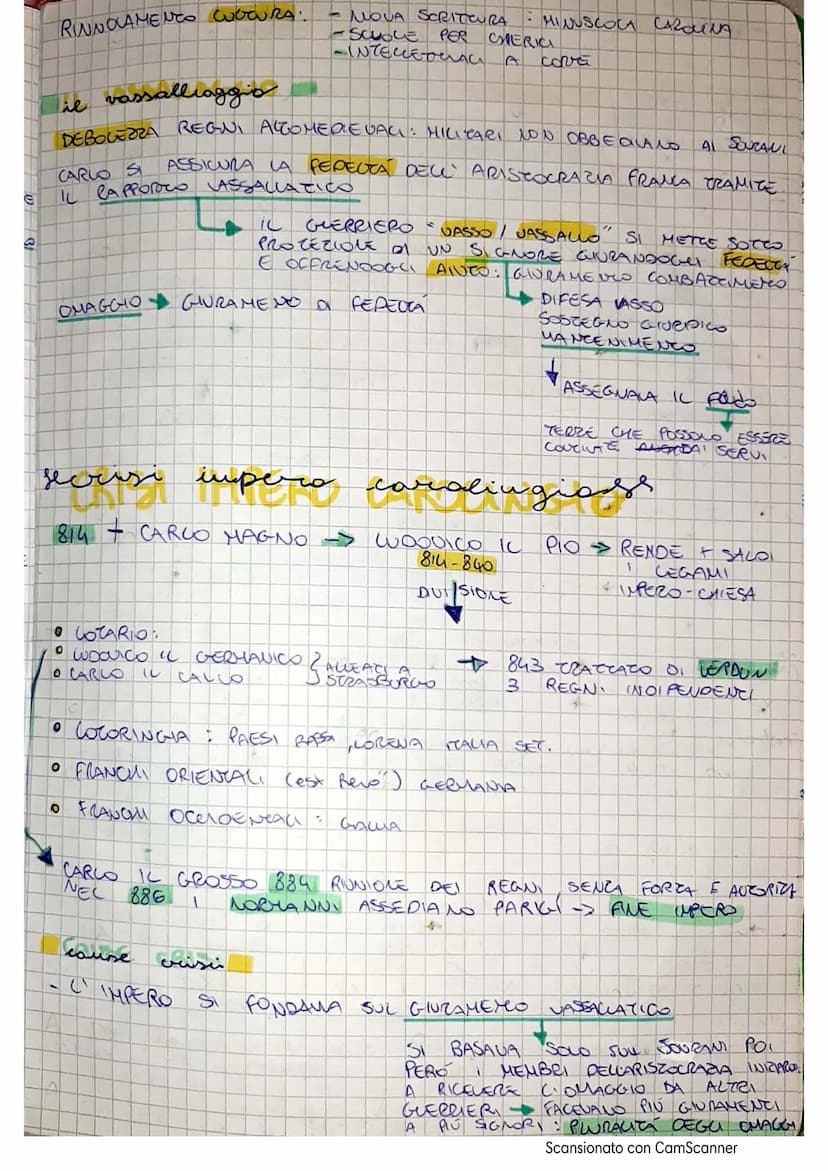 RINNOVAMENTO CULTURA: - NUOVA SCRITTURA : MINUSCOLA CAROLINA
- SCUOLE PER CHIERICI
- INTELLETTUALI A CORTE
il vassallaggio
DEBOLEZZA REGNI ALTOMEDIEVALI: MILITARI NON OBBEDIVANO AI SOVRANI
CARLO SI ASSICURA LA FEDELTÁ DELL' ARISTOCRAZIA FRANCA TRAMITE
IL RAPPORTO VASSALLATICO
IL GUERRIERO "VASSO / VASSALLO" SI METTE SOTTO
PROTEZIONE DI UN SIGNORE GIURANDOGLI FEDELTÁ
E OFFRENDOGLI AIUTO: GIURAMENTO COMBATTIMENTO
OMAGGIO → GIURAMENO DI FEDELTÁ
DIFESA VASSO
SOSTEGNO GIURIDICO
MANTENIMENTO
ASSEGNAVA IL feudo
TERRE CHE POSSONO ESSERE
COLTIVATE DAI SERVI
CRISI IMPERO CAROLINGIO
814 + CARLO MAGNO → LUDOVICO IL PIO → RENDE + SALDI
814-840 I LEGAMI
DIVISIONE IMPERO-CHIESA
• LOTARIO:
• LUDOVICO IL GERMANICO } ALLEATI A → 843 TRATTATO DI VERDUN
• CARLO IL CALVO } STRASBURGO 3 REGNI INDIPENDENTI
• LOTORINGIA : PAESI BASSI, LORENA ITALIA SET.
• FRANCHI ORIENTALI (est Reno) GERMANIA
• FRANCHI OCCIDENTALI : GALLIA
CARLO IL GROSSO 884 RIUNIONE DEI REGNI, SENZA FORZA E AUTORITÁ
NEL 886 I NORMANNI ASSEDIANO PARIGI → FINE IMPERO
cause crisi
- L' IMPERO SI FONDAVA SUL GIURAMENTO VASSALLATICO
SI BASAVA SOLO SUI SOVRANI POI
PERÒ I MEMBRI DELL'ARISTOCRAZIA INIZIARO.
A RICEVERE L'OMAGGIO DA ALTRI
GUERRIERI → FACEVANO PIÚ GIURAMENTI
A PIÚ SIGNORI : PLURALITÁ DEGLI OMAGGI
Scansionato con CamScanner